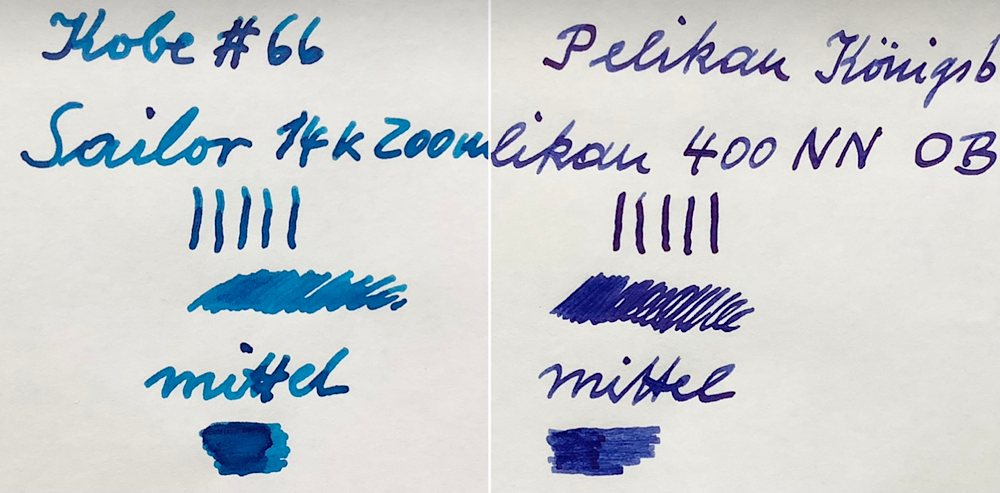 Kobe #66
Sailor 14k Zoom
mittel
Pelikan Königsb
likan 400 NN OB
mittel